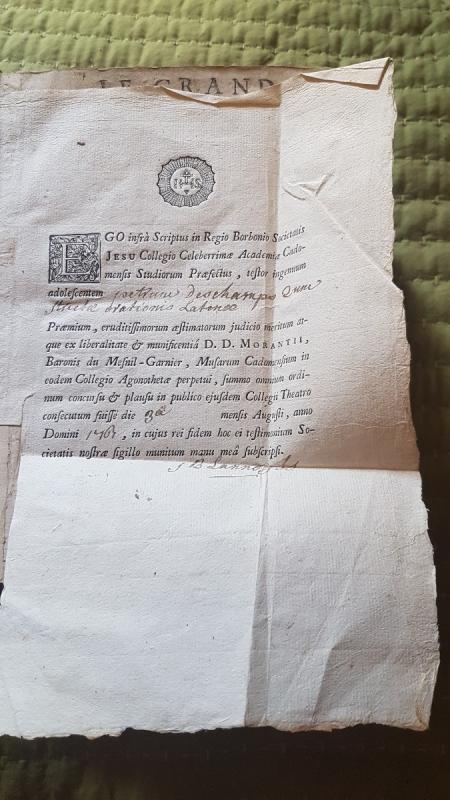 LE GRAND
IHS
EGO infrà Scriptus in Regio Borbonio Societatis
JESU Collegio Celeberrimæ Academiæ Cado-
mensis Studiorum Præfectus, testor ingenuum
adolescentem petrum deschamps
strictæ orationis Latinæ
Præmium, eruditissimorum æstimatorum judicio meritum at-
que ex liberalitate & munificentiâ D. D. MORANTII,
Baronis du Mesnil-Garnier, Musarum Cadomensium in
eodem Collegio Agonothetæ perpetui, summo omnium ordi-
num concursu & plausu in publico ejusdem Collegii Theatro
consecutum fuisse die 3ª mensis Augusti, anno
Domini 1761, in cujus rei fidem hoc ei testimonium So-
cietatis nostræ sigillo munitum manu meâ subscripsi.
J B